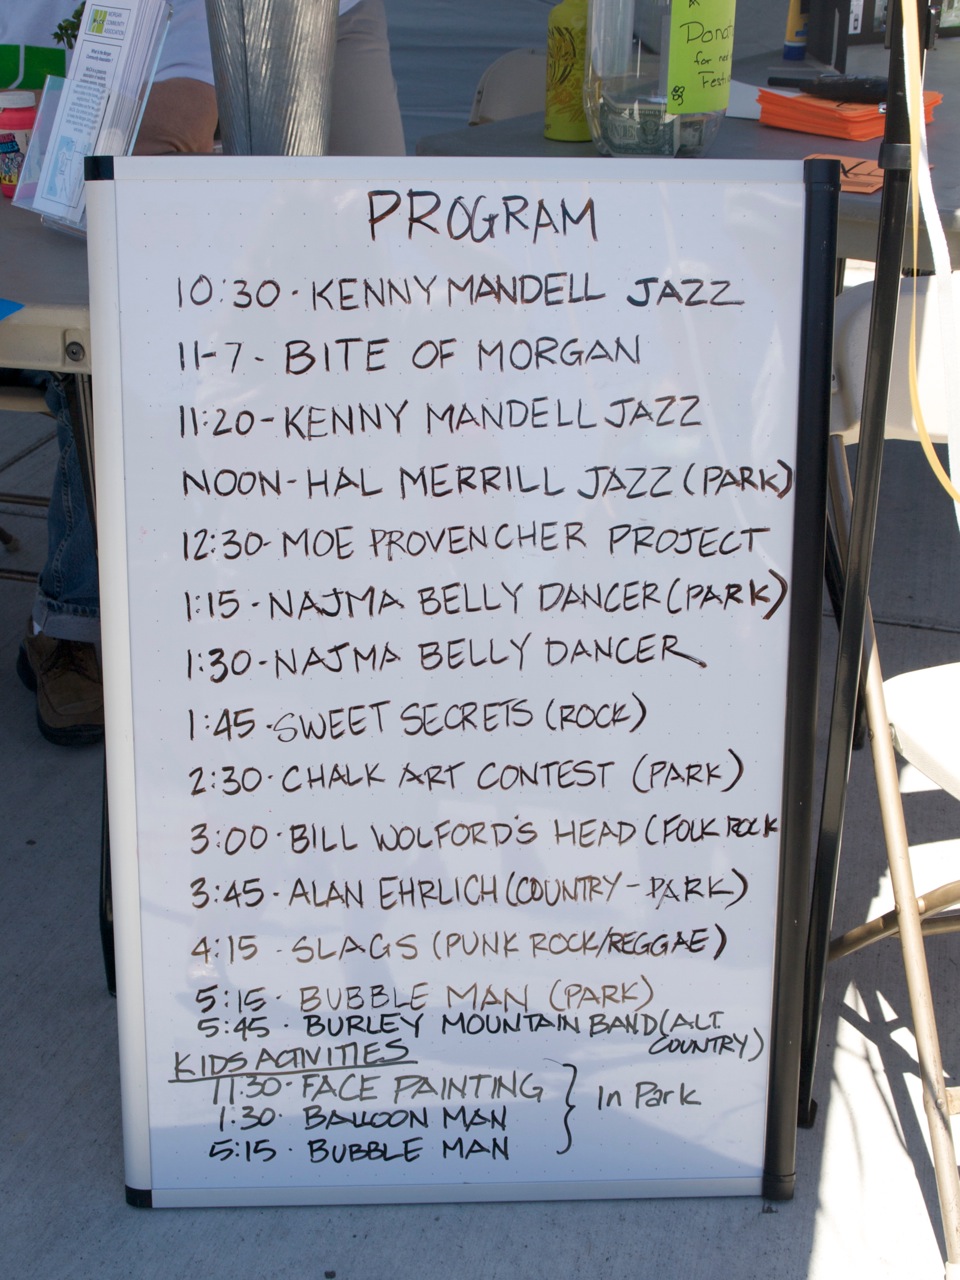 MORGAN
COMMUNITY
ASSOCIATION
Donat
for ne
Festi
PROGRAM
10:30 · KENNY MANDELL JAZZ
11-7 - BITE OF MORGAN
11:20 - KENNY MANDELL JAZZ
NOON - HAL MERRILL JAZZ (PARK)
12:30 - MOE PROVENCHER PROJECT
1:15 - NAJMA BELLY DANCER (PARK)
1:30 - NAJMA BELLY DANCER
1:45 - SWEET SECRETS (ROCK)
2:30 · CHALK ART CONTEST (PARK)
3:00 · BILL WOLFORD'S HEAD (FOLK ROCK
3:45 - ALAN EHRLICH (COUNTRY - PARK)
4:15 - SLAGS (PUNK ROCK/REGGAE)
5:15 · BUBBLE MAN (PARK)
5:45 · BURLEY MOUNTAIN BAND (ALT
COUNTRY)
KIDS ACTIVITIES
11:30 · FACE PAINTING
1:30 · BALLOON MAN
5:15 · BUBBLE MAN
In Park